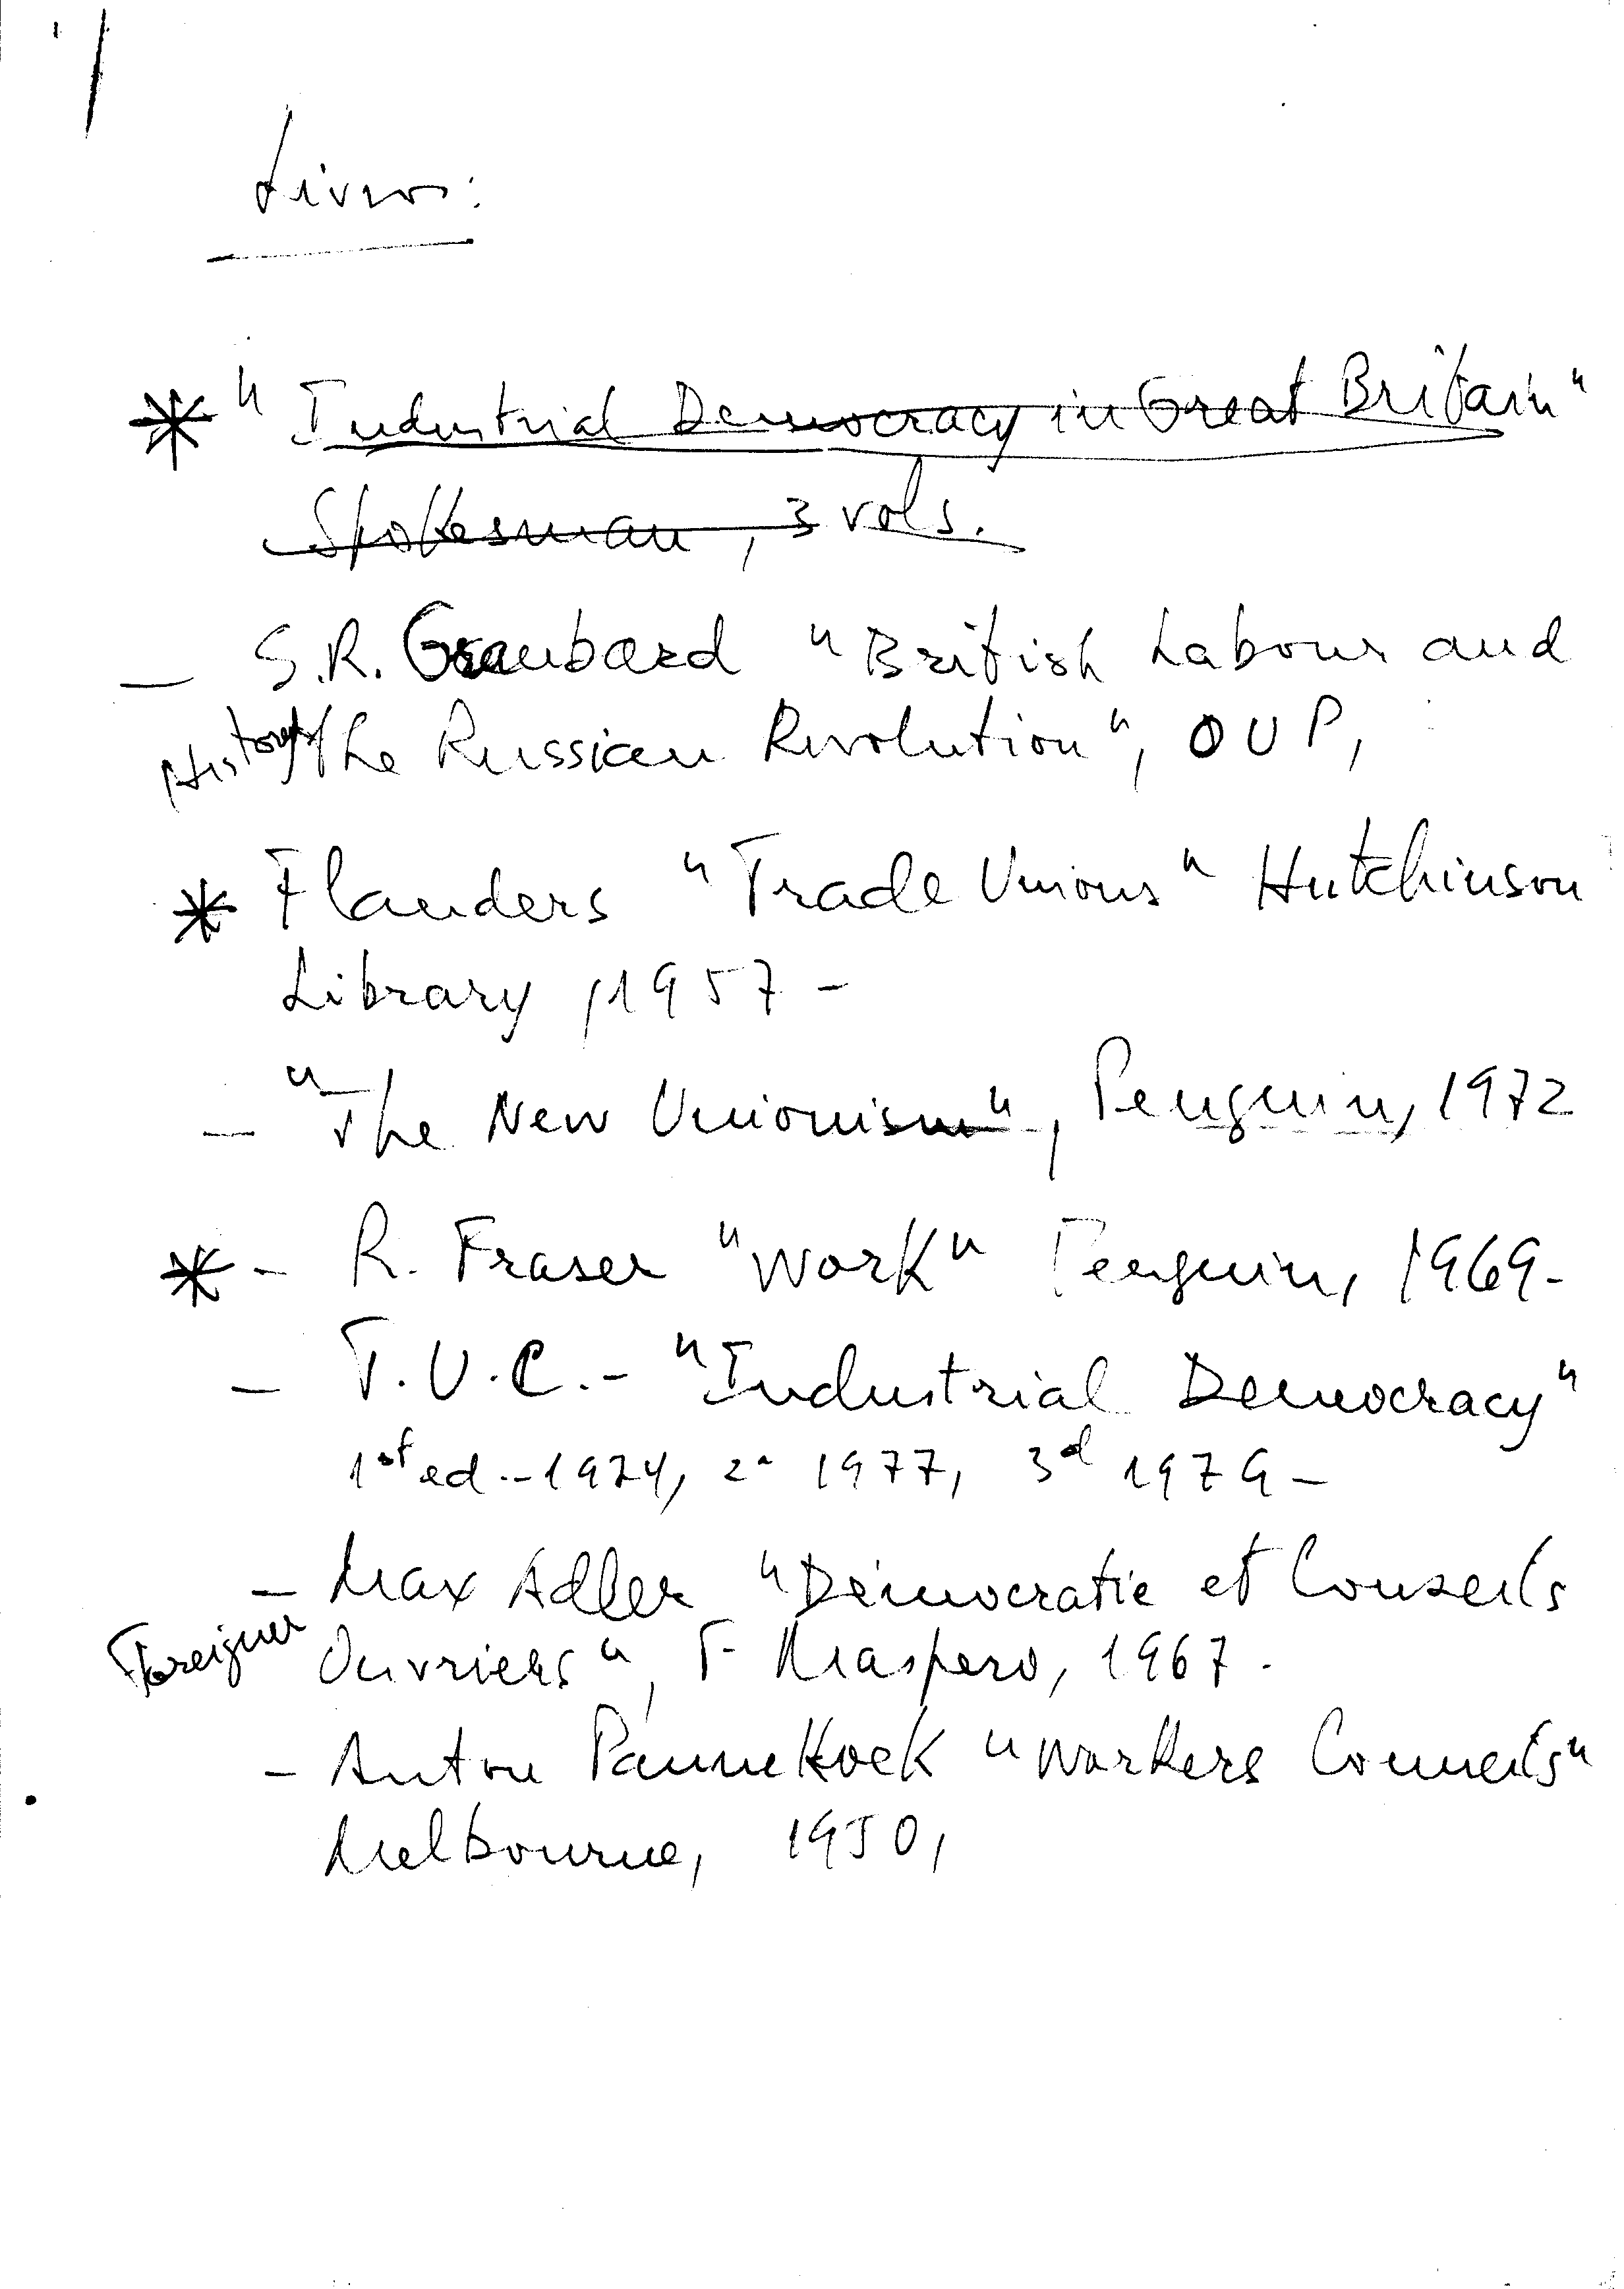 Livros:
* "Industrial Democracy in Great Britain"
Spokesman, 3 vols.
— S.R. Graubard "British Labour and
History the Russian Revolution", OUP,
* Flanders "Trade Unions" Hutchinson
Library, 1957 -
- "The New Unionism", Penguin, 1972
* - R. Fraser "Work" Penguin, 1969-
- T.U.C.- "Industrial Democracy"
1st ed.-1974, 2ª 1977, 3d 1979 -
- Max Adler "Démocratie et Conseils
Foreigner Ouvriers", F. Maspero, 1967.
- Anton Pannekoek "Workers Councils"
Melbourne, 1950,